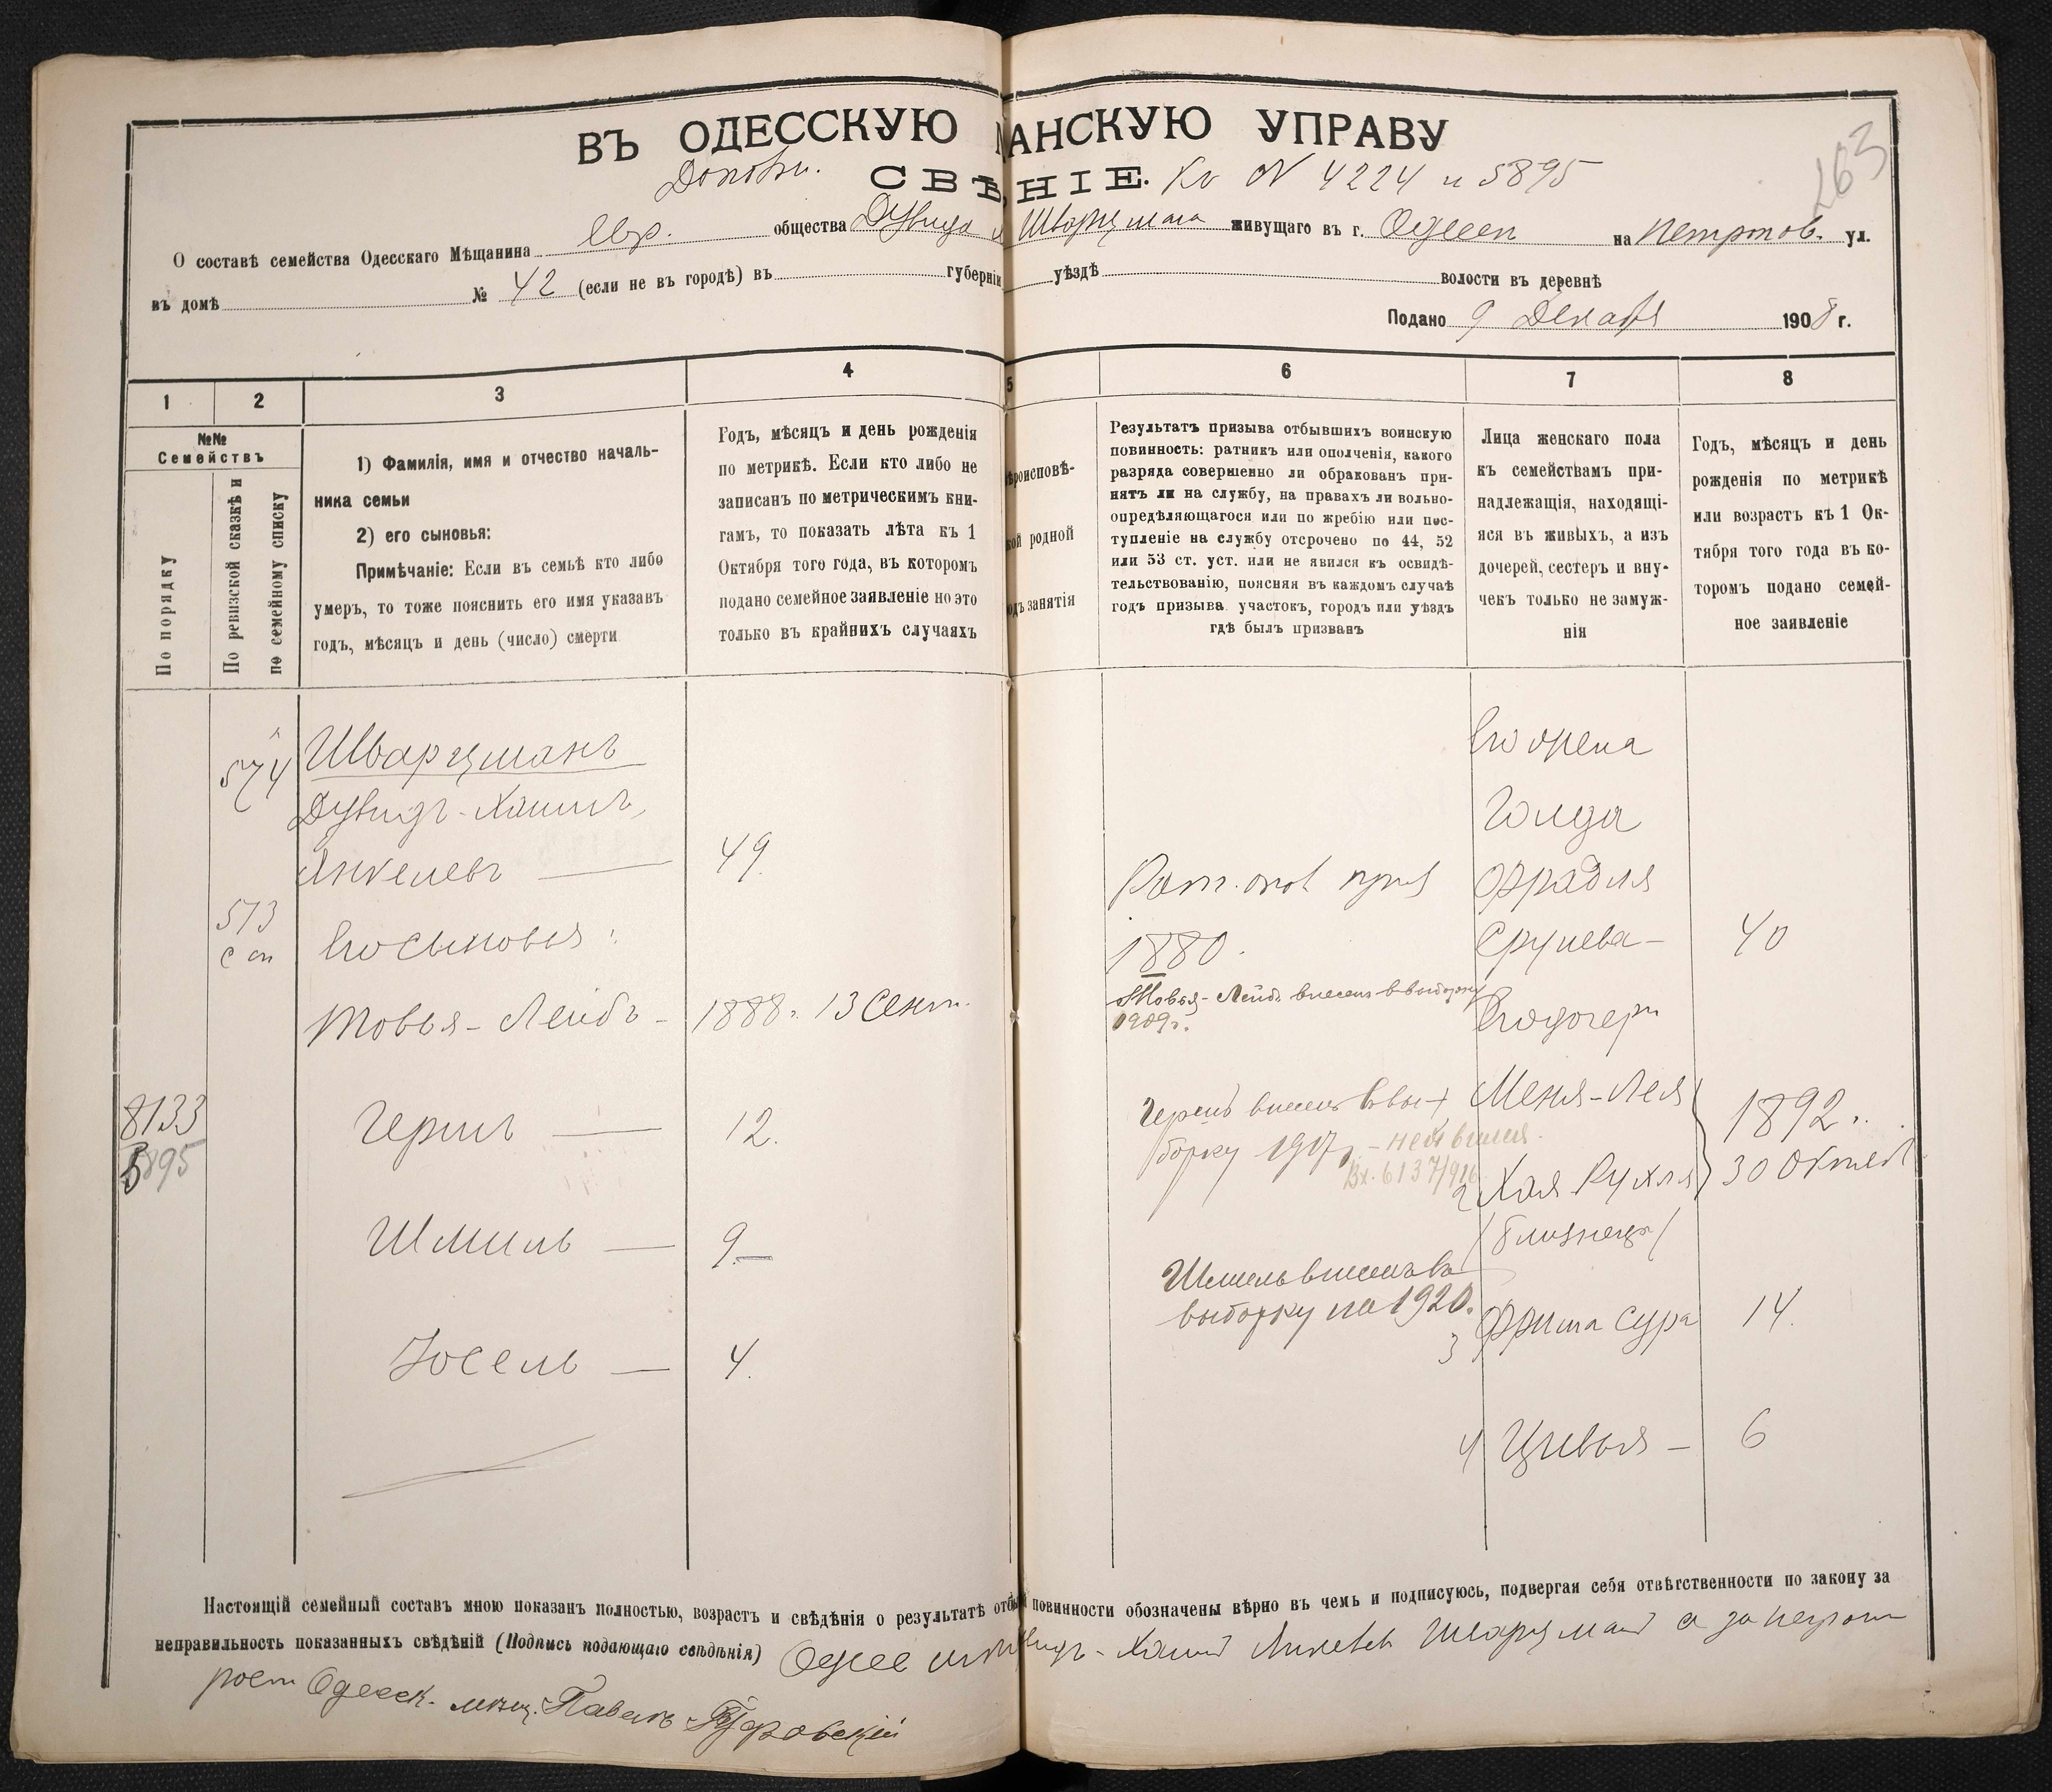 ВЪ ОДЕССКУЮ АНСКУЮ УПРАВУ
263
СВѢНІЕ. Къ N 4224 и 5895
О составѣ семейства Одесскаго Мѣщанина Евр. общества Дувида Шварцмана живущаго въ г. Одессѣ на Петропов. ул.
въ домѣ № 42 (если не въ городѣ) въ губерніи уѣздѣ волости въ деревнѣ
Подано 9 Декабря 1908 г.
1 2 3 4 5 6 7 8
№№
Семействъ
По порядку
По ревизской сказкѣ и
по семейному списку
1) Фамилія, имя и отчество началь-
ника семьи
2) его сыновья:
Примѣчаніе: Если въ семьѣ кто либо
умеръ, то тоже пояснить его имя указавъ
годъ, мѣсяцъ и день (число) смерти
Годъ, мѣсяцъ и день рожденія
по метрикѣ. Если кто либо не
записанъ по метрическимъ кни-
гамъ, то показать лѣта къ 1
Октября того года, въ которомъ
подано семейное заявленіе но это
только въ крайнихъ случаяхъ
ѣроисповѣ-
кой родной
одъ занятія
Результатъ призыва отбывшихъ воинскую
повинность: ратникъ или ополченія, какого
разряда совершенно ли обракованъ при-
нятъ ли на службу, на правахъ ли вольно-
опредѣляющагося или по жребію или пос-
тупленіе на службу отсрочено по 44, 52
или 53 ст. уст. или не явился къ освидѣ-
тельствованію, поясняя въ каждомъ случаѣ
годъ призыва участокъ, городъ или уѣздъ
гдѣ былъ призванъ
Лица женскаго пола
къ семействамъ при-
надлежащія, находящі-
яся въ живыхъ, а изъ
дочерей, сестеръ и вну-
чекъ только не замуж-
нія
Годъ, мѣсяцъ и день
рожденія по метрикѣ
или возрастъ къ 1 Ок-
тября того года въ ко-
торомъ подано семей-
ное заявленіе
574 Шварцманъ
Дувидъ-Хаимъ
Янкелевъ — 49.
573
с сп
Его сыновья:
Товья-Лейбъ - 1888г. 13 Сент.
8133
5895
Гершъ — 12.
Шмиль — 9.—
Іосель — 4.
Рат. опол. приз
1880.
Товья-Лейбъ внесенъ въ выборку
1909г.
Гершъ внесенъ въ вы-
борку 1917г. - не явился.
Вх. 6137/916
Шмиль внесенъ въ
выборку на 1920.
Его жена
Голда
Фрадля
Срулева - 40
Его дочери
Меня-Лея 1892г.
2 Хая Рухля 30 Октяб.
(близнецы)
3 Фрима Сура 14.
4 Цивья - 6
Настоящій семейный составъ мною показанъ полностью, возрастъ и свѣдѣнія о результатѣ отбы повинности обозначены вѣрно въ чемъ и подписуюсь, подвергая себя отвѣтственности по закону за
неправильность показанныхъ свѣдѣній (Подпись подающаго свѣдѣнія) Одес Дувидъ-Хаимъ Янкелевъ Шварцманъ а за неграм
Одесск. мѣщ. Павелъ